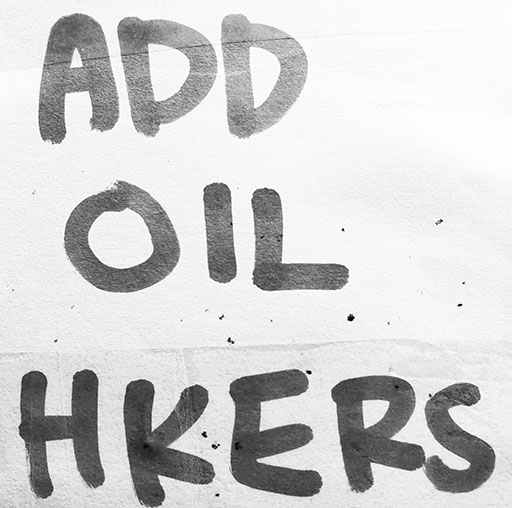 ADD
OIL
HKERS